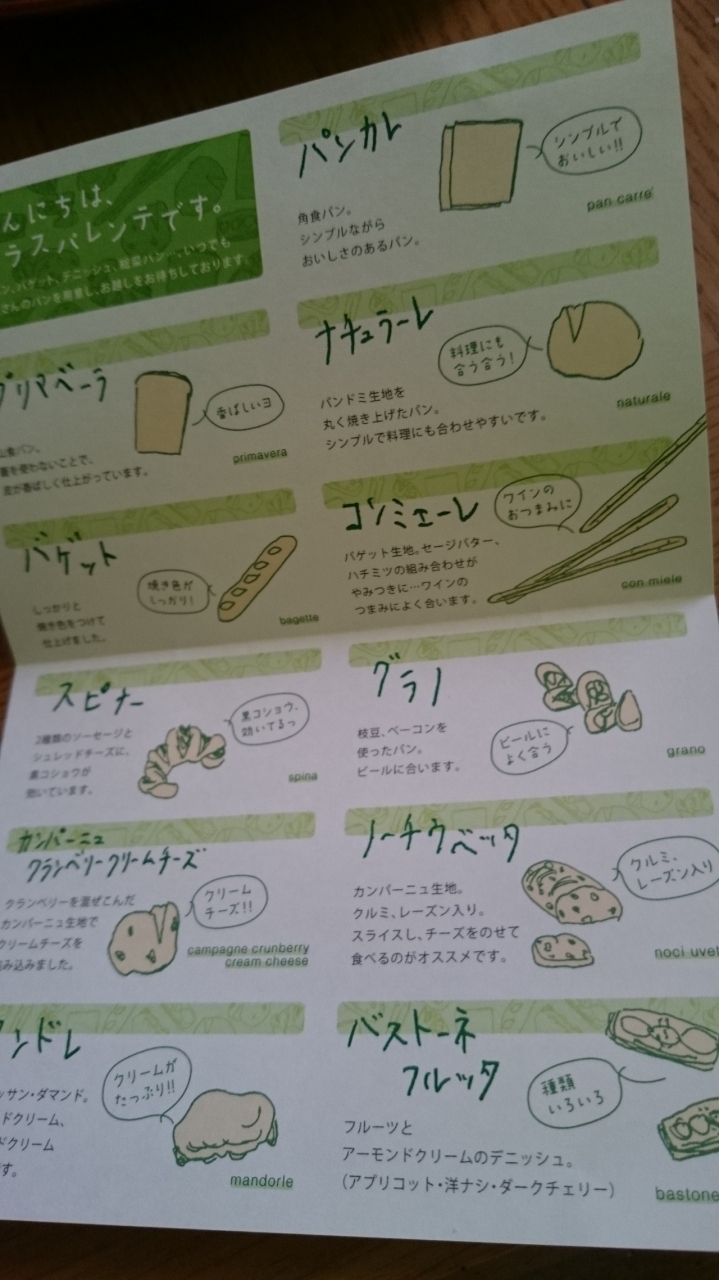 んにちは、
ラスバレンテです。
ン、バゲット、デニッシュ、総菜パン…、いつでも
さんのパンを用意し、お越しをお待ちしております。
パンカレ
シンプルで
おいしい!!
角食パン。
シンプルながら
おいしさのあるパン。
pan carre'
プリマベーラ
香ばしいヨ
山食パン。
を使わないことで、
皮が香ばしく仕上がっています。
primavera
ナチュラーレ
料理にも
合う合う!
パンドミ生地を
丸く焼き上げたパン。
シンプルで料理にも合わせやすいです。
naturale
バゲット
焼き色が
しっかり!
しっかりと
焼き色をつけて
仕上げました。
bagette
コンミエーレ
ワインの
おつまみに
バゲット生地。セージバター、
ハチミツの組み合わせが
やみつきに…ワインの
つまみによく合います。
con miele
スピナー
黒コショウ、
効いてるっ
2種類のソーセージと
シュレッドチーズに、
黒コショウが
効いています。
spina
グラノ
ビールに
よく合う
枝豆、ベーコンを
使ったパン。
ビールに合います。
grano
カンパーニュ
クランベリークリームチーズ
クリーム
チーズ!!
クランベリーを混ぜこんだ
カンパーニュ生地で
クリームチーズを
み込みました。
campagne crunberry
cream cheese
ノーチウベッタ
クルミ、
レーズン入り
カンパーニュ生地。
クルミ、レーズン入り。
スライスし、チーズをのせて
食べるのがオススメです。
noci uvet
ンドレ
クリームが
たっぷり!!
ッサン・ダマンド。
ドクリーム、
ドクリーム
す。
mandorle
バストーネ
フルッタ
種類
いろいろ
フルーツと
アーモンドクリームのデニッシュ。
(アプリコット・洋ナシ・ダークチェリー)
bastone